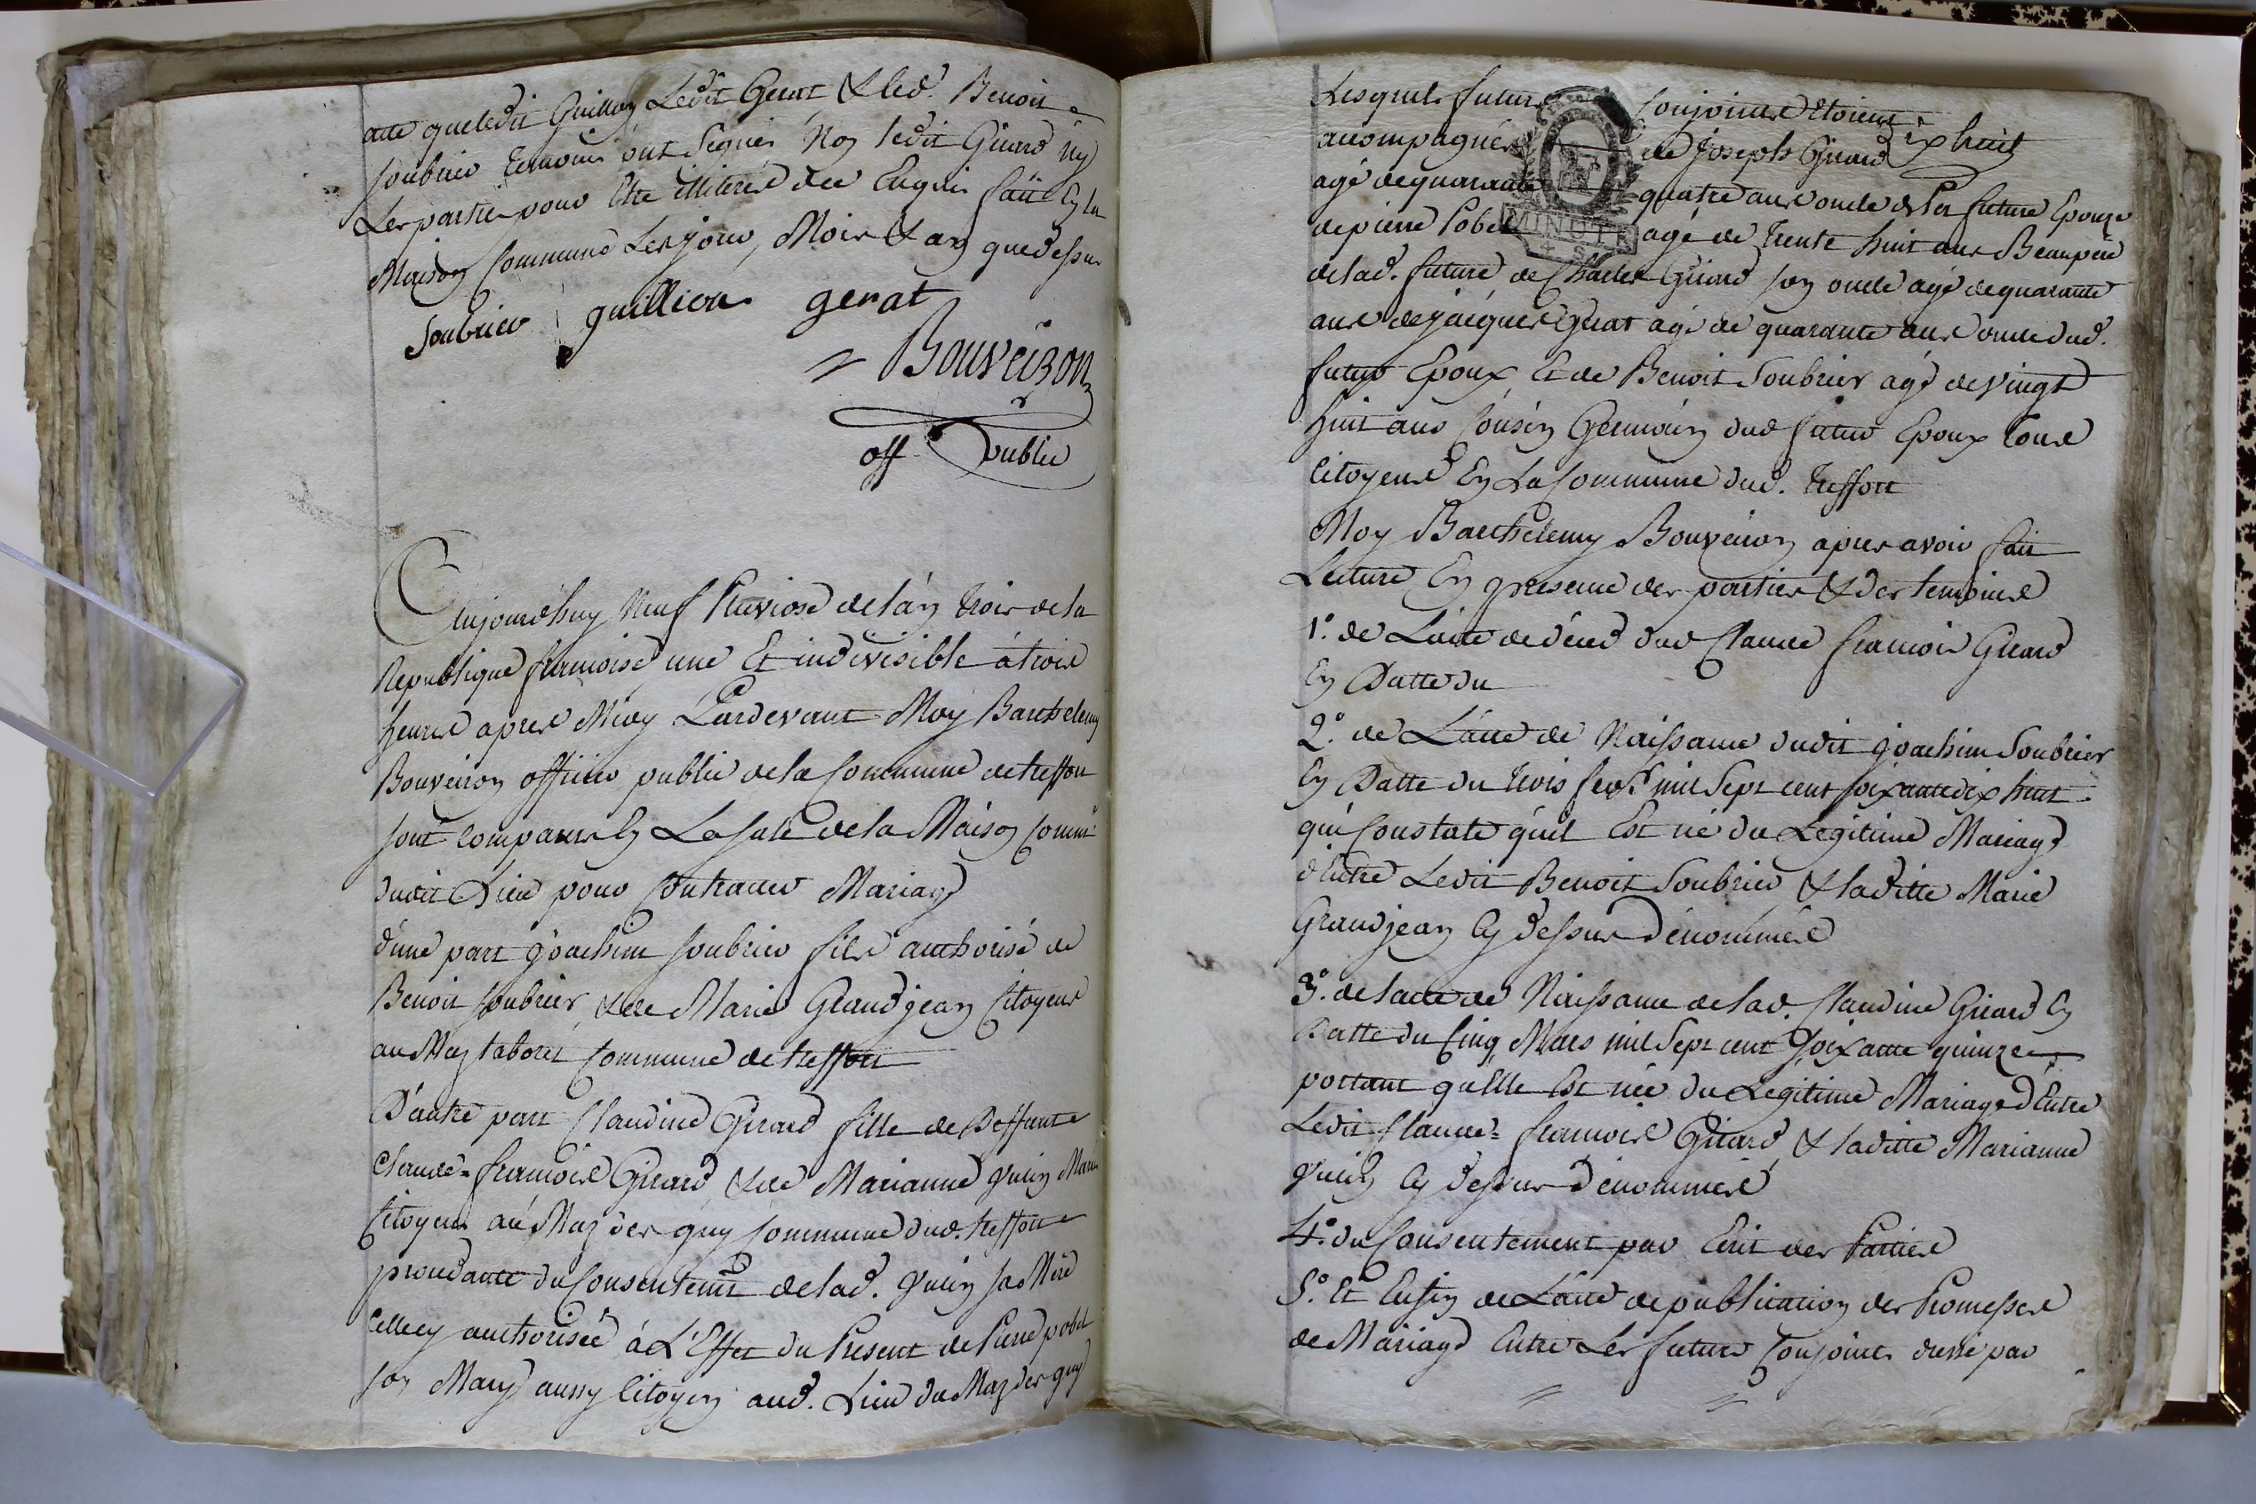 acte que ledit Guillon Ledit Gerat & led. Benoit
soubrier temoins ont Signés Non ledit Girard ny
Les parties pour Etre illiterés dee Enquis fait En la
Maison Commune Les jour, Mois & an que dessus
Soubrier guillion gerat
Bouveiron
off. public
Aujourdhuy Neuf Pluviose de lán trois de la
Republique francoise une Et indivisible á trois
heures apres Midy Pardevant Moy Barthelemy
Bouveiron officier public de la Commune de treffort
sont Comparus En La Sale de la Maison Comm.e
dudit Lieu pour Contracter Mariage
dúne part Joachim Soubrier fils authorisé de
Benoit Soubrier, & de Marie Grandjean Citoyens
au Maz tabouret Commune de treffort
D'autre part Claudine Girard fille de Deffunt
Claude=francois Girard, & de Marianne
Citoyens au Maz des guy Commune dud. treffort
du Consentemt de lad. sa Mere
Cellecy authorisée á L'Effet du Present de Pierre pobel
son Mary aussy Citoyen aud. Lieu du Maz des guy
Lesquels futurs Conjoints Etoient
accompagnés de Joseph Girard x huit
agé de quarante quatre ans oncle de La future Epouze
de pierre Pobel agé de trente huit ans Beaupere
de lad. future, de Charles Girard son oncle agé de quarante
ans de jácques Gerat agé de quarante ans oncle dud.
futur Epoux, Et de Benoit Soubrier agé de vingt
huit ans Cousin Germain dud futur Epoux tous
Citoyens En La Commune dud. treffort
Moy Barthelemy Bouveiron apres avoir fait
Lecture En presence des parties & des temoins
1.º de Lacte de déces dud Claude francois Girard
En Datte du
2.º de L'acte de Naissance dudit joachim Soubrier
En Datte du trois fevr. mil Sept cent soixante dix huit.
qui Constate qúil Est né du Legitime Mariage
d'Entre Ledit Benoit Soubrier & laditte Marie
Grandjean Cy dessus dénommés
3.º de lacte de Naissance de lad. Claudine Girard En
Datte du Cinq Mars mil Sept cent Soixante quinze
portant quElle Est née du Legitime Mariage d'Entre
Ledit Claude=francois Girard, & laditte Marianne
Cy dessus dénommés
4.º du Consentement par Ecrit des Parties
5.º Et Enfin de L'acte de publication des Promesses
de Mariage Entre Les futurs Conjoints dressé par
MINUTE